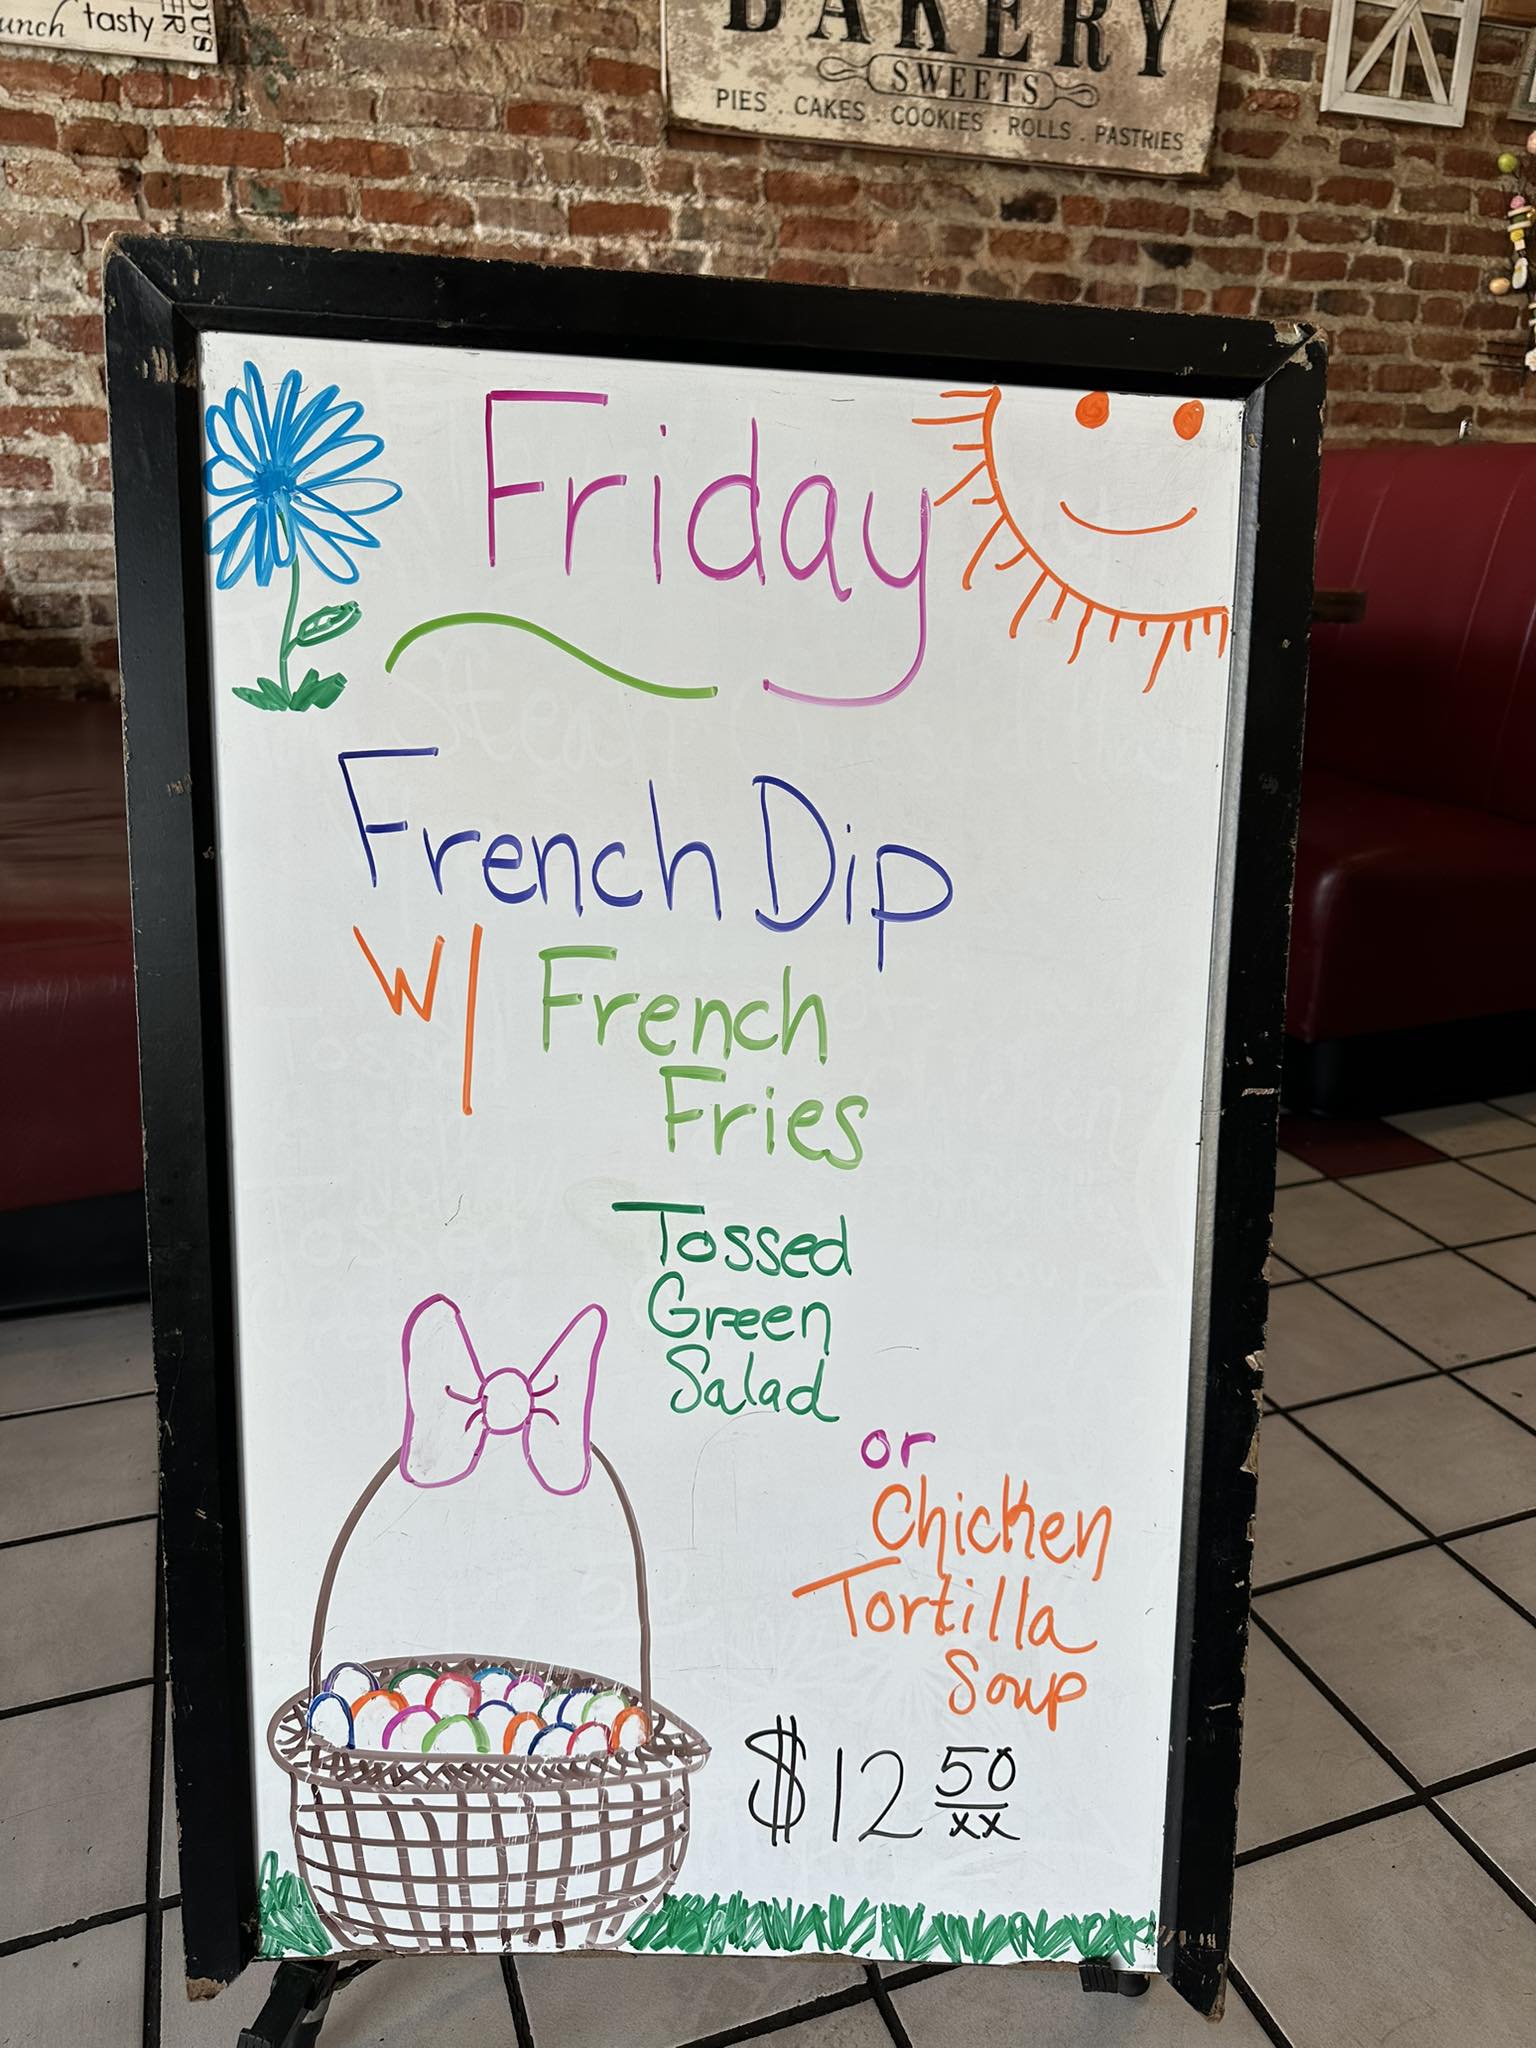 unch tasty
OUS
ER
BAKERY
SWEETS
PIES . CAKES . COOKIES . ROLLS . PASTRIES
Friday
French Dip
W/ French
Fries
Tossed
Green
Salad
or
Chicken
Tortilla
Soup
$12 50
xx